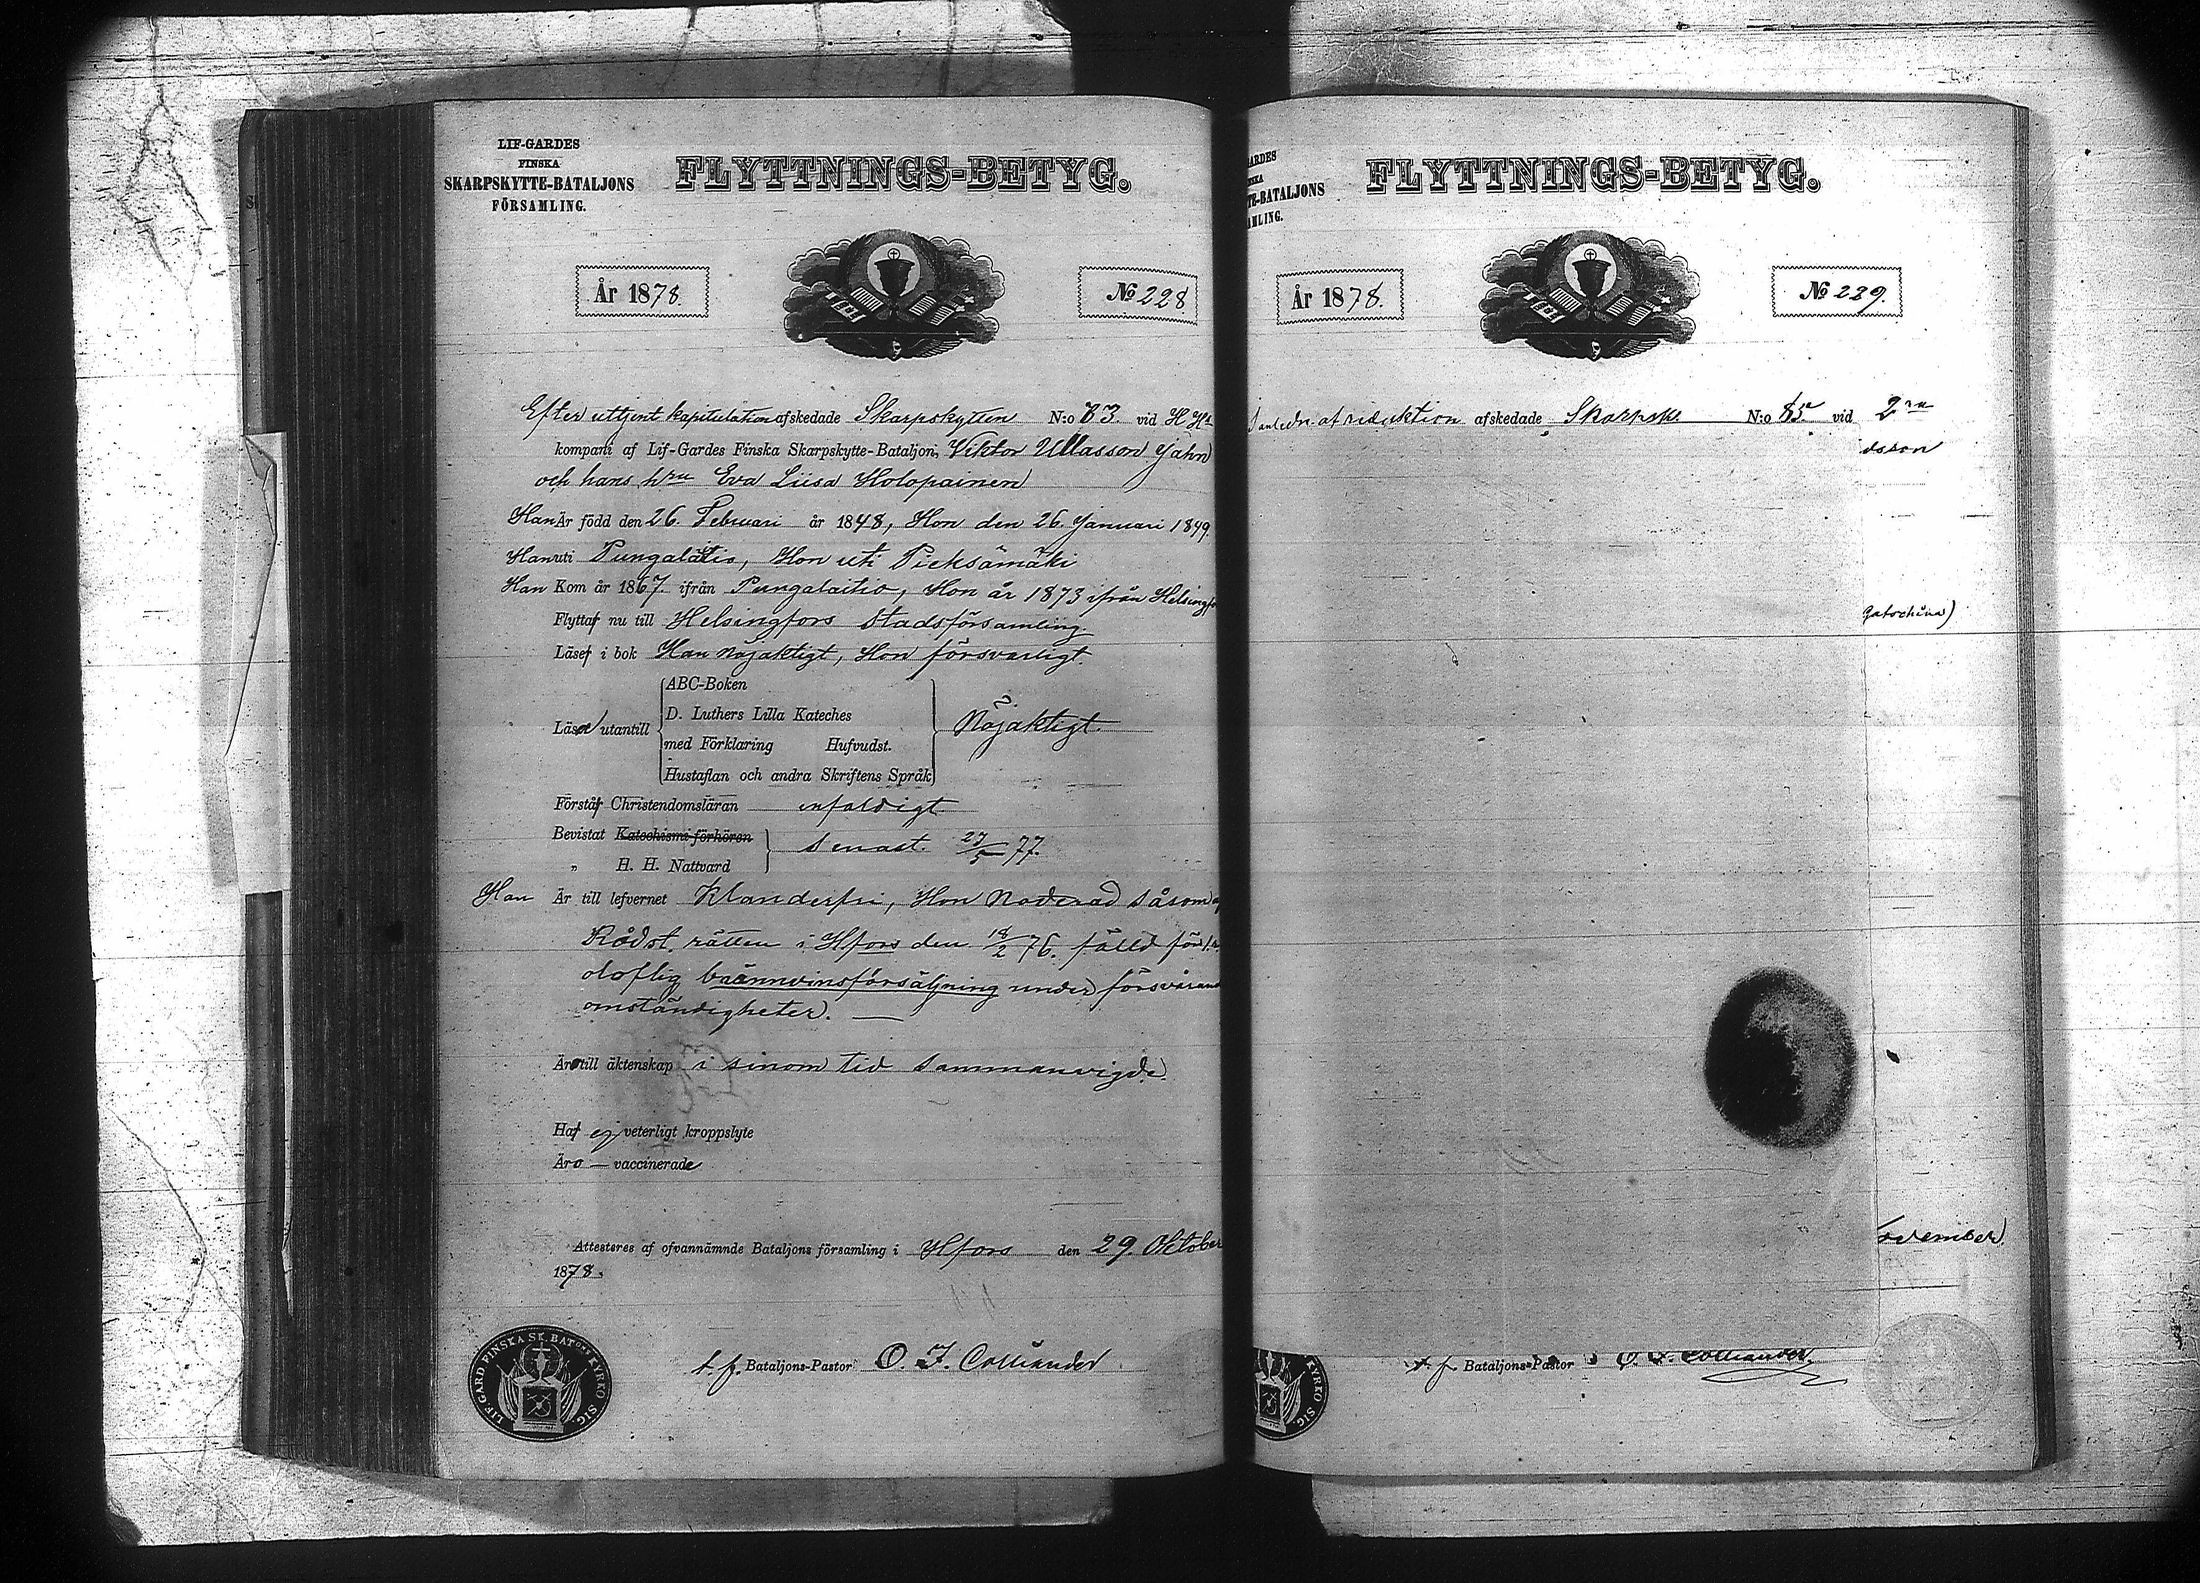 LIF-GARDES
FINSKA
SKARPSKYTTE-BATALJONS
FÖRSAMLING.
FLYTTNINGS-BETYG.
År 1878.
No 228
Efter uttjent kapitulation afskedade Skarpskytten N:o 83. vid H Hs
kompani af Lif-Gardes Finska Skarpskytte-Bataljon, Viktor Ullasson Jahn
och hans hru Eva Liisa Holopainen
Han Är född den 26. Februari år 1848, Hon den 26. Januari 1849.
Han uti Pungalaitio, Hon uti Pieksämäki
Han Kom år 1867. ifrån Pungalaitio, Hon år 1873 ifrån Helsingfo
Flytta nu till Helsingfors Stadsförsamling
Läser i bok Han Nöjaktigt, Hon försvarligt.
ABC-Boken
D. Luthers Lilla Kateches
Läsa utantill
med Förklaring Hufvudst.
Nöjaktigt.
Hustaflan och andra Skriftens Språk
Förstå Christendomsläran enfaldigt
Bevistat Katechismi förhören
„ H. H. Nattvard
Senast. 27/5 77.
Han Är till lefvernet Klanderfri, Hon Noterad såsom af
Rådst. rätten i Hfors den 18/2 76. fälld för
olaflig brännvinsförsäljning under försvårand
omständigheter. —
Äro till äktenskap i sinom tid sammanvigde.
Haf ej veterligt kroppslyte
Äro — vaccinerade
Attesteras af ofvannämnde Bataljons församling i Hfors den 29. Oktober
1878.
LIF-GARD FINSKA SK. BATons KYRKO SIG.
t. f. Bataljons-Pastor: O. F. Colliander
ARDES
TE-BATALJONS
MLING.
FLYTTNINGS-BETYG.
År 1878.
No 229.
anledn. af reduktion afskedade Skarpsk. N:o 85. vid 2ra
dsson
Gatschina)
ovember.
KYRKO SIG.
t. f. Bataljons-Pastor O. F. Colliander.